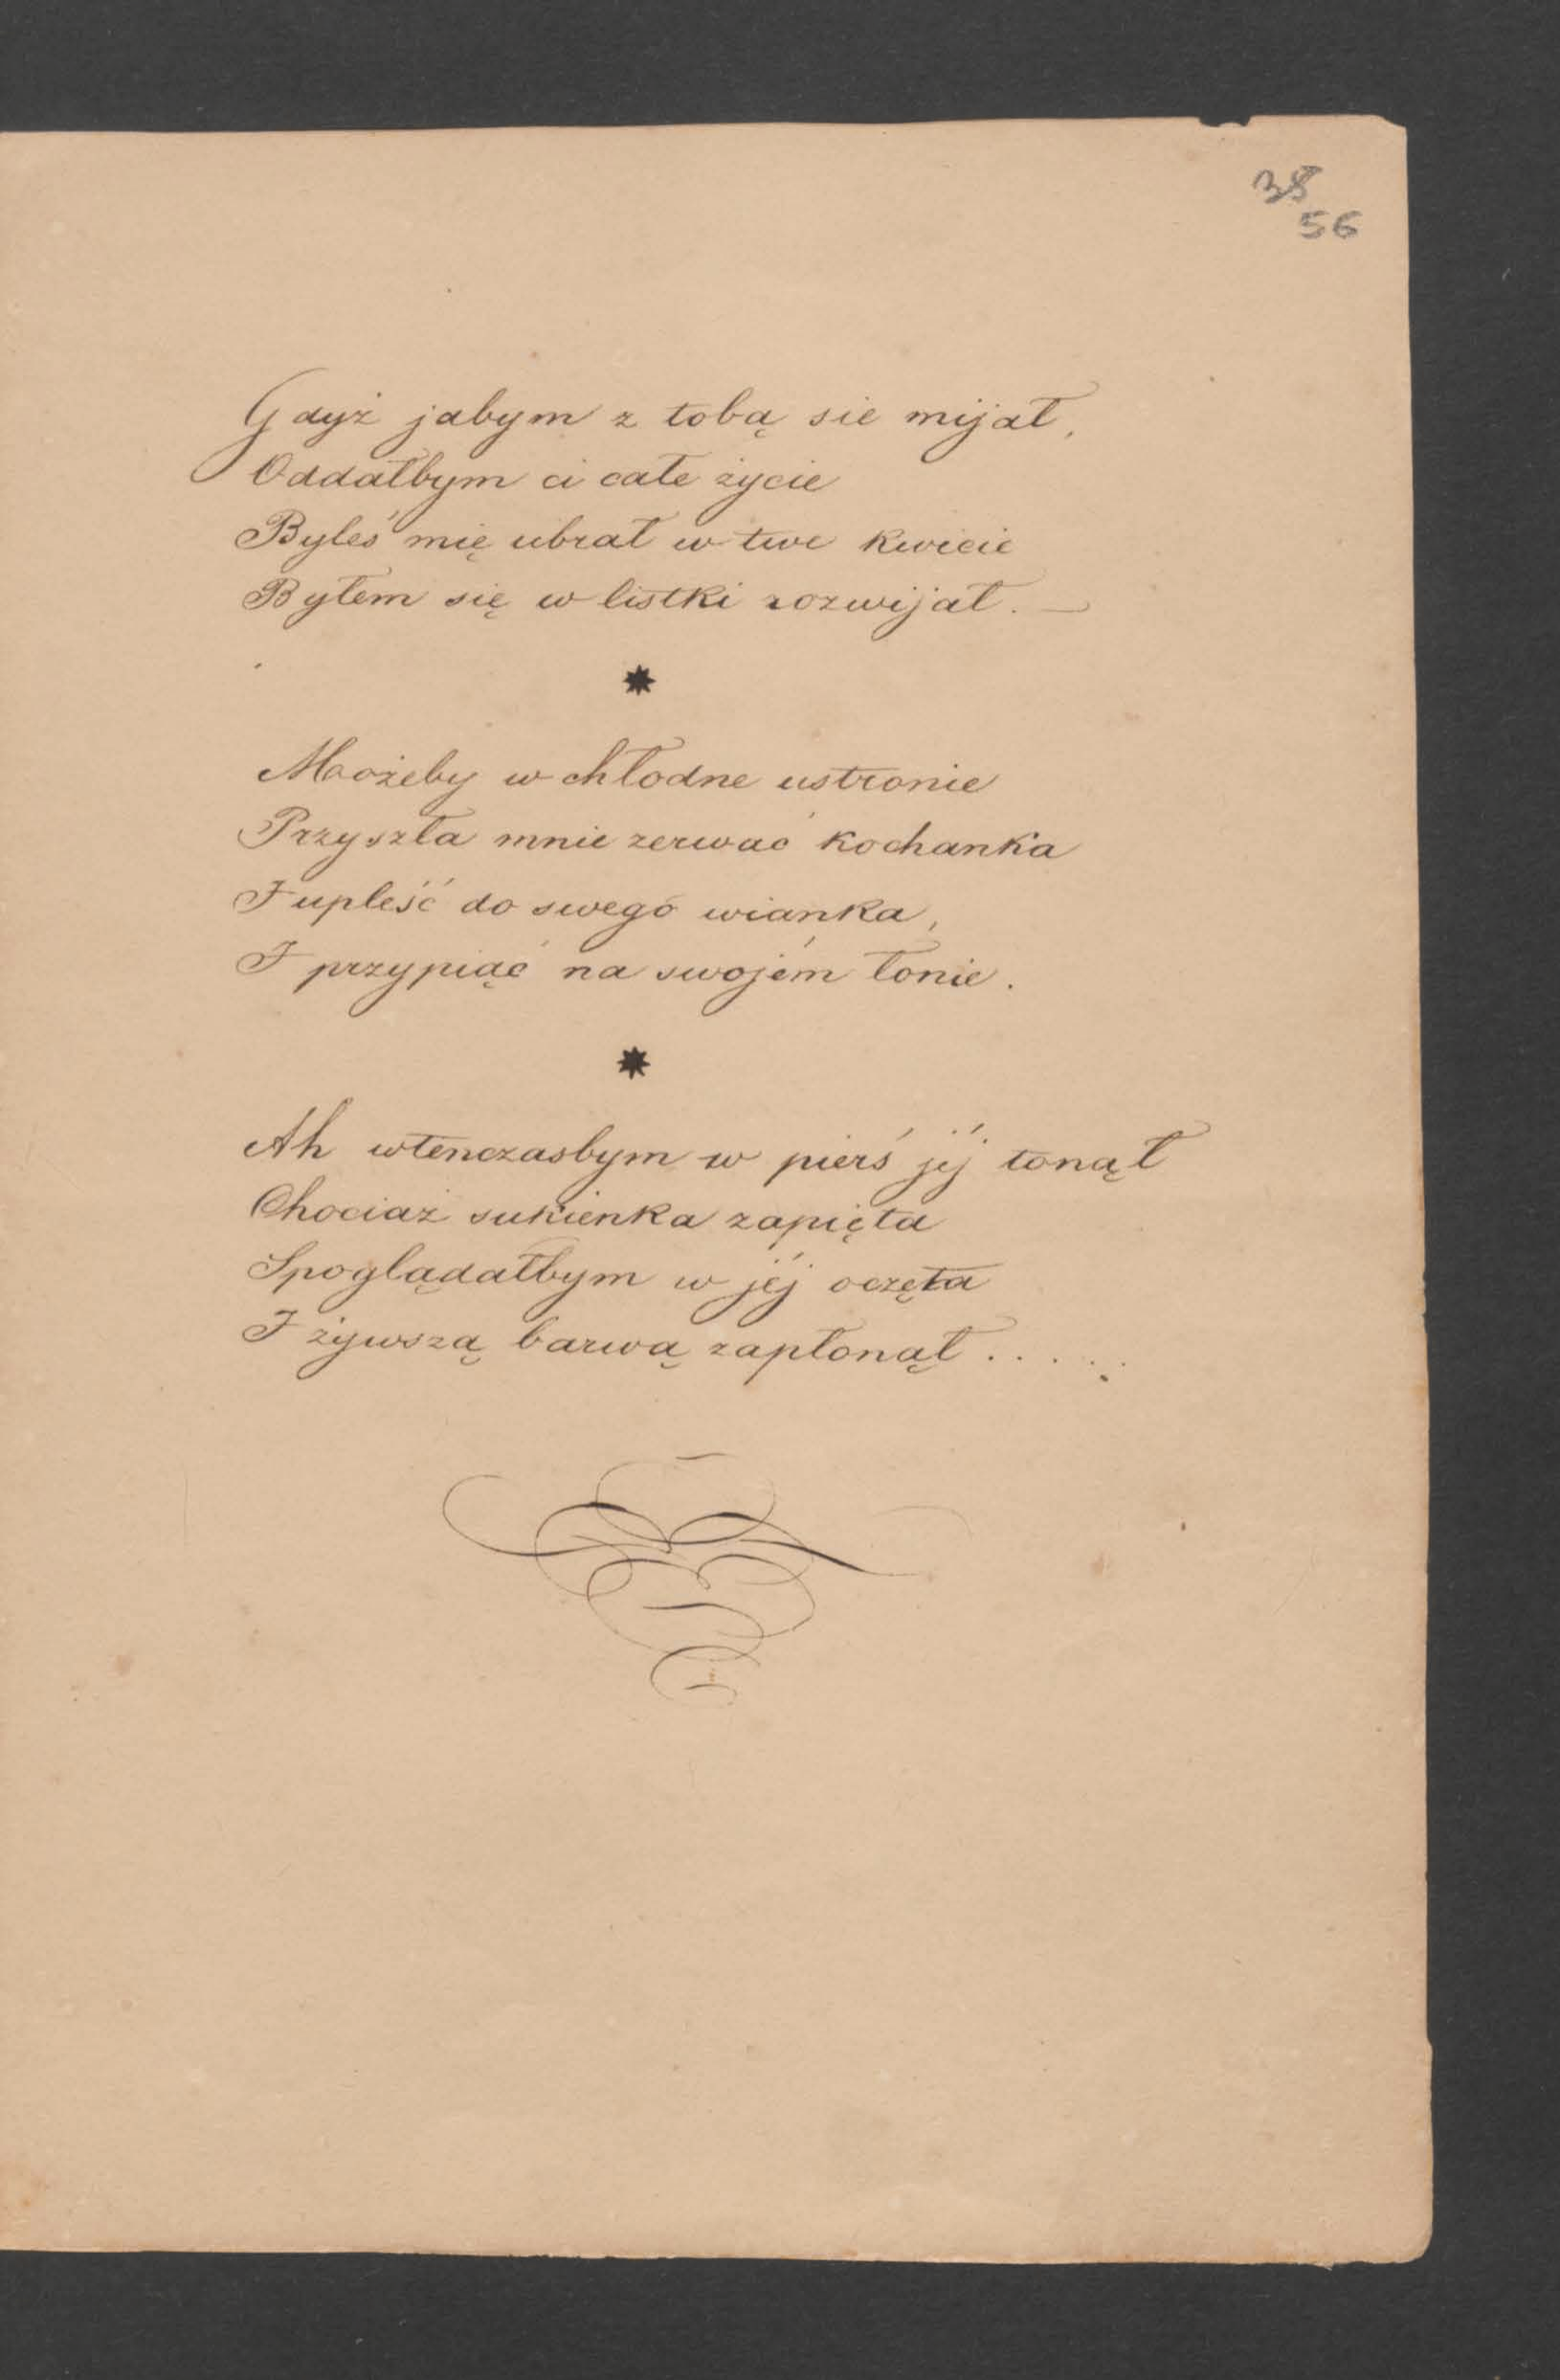 38
56
Gdyż jabym z tobą sie mijał,
Oddałbym ci całe życie
Byleś mię ubrał w twe kwiecie
Bylem się w listki rozwijał. —
*
Możeby w chłodne ustronie
Przyszła mnie zerwać kochanka
I upleść do swego wianka,
I przypiąć na swojém łonie.
*
Ah wtenczasbym w pierś jéj tonął
Chociaż sukienka zapięta
Spoglądałbym w jéj oczęta
I żywszą barwą zapłonął . . . . .